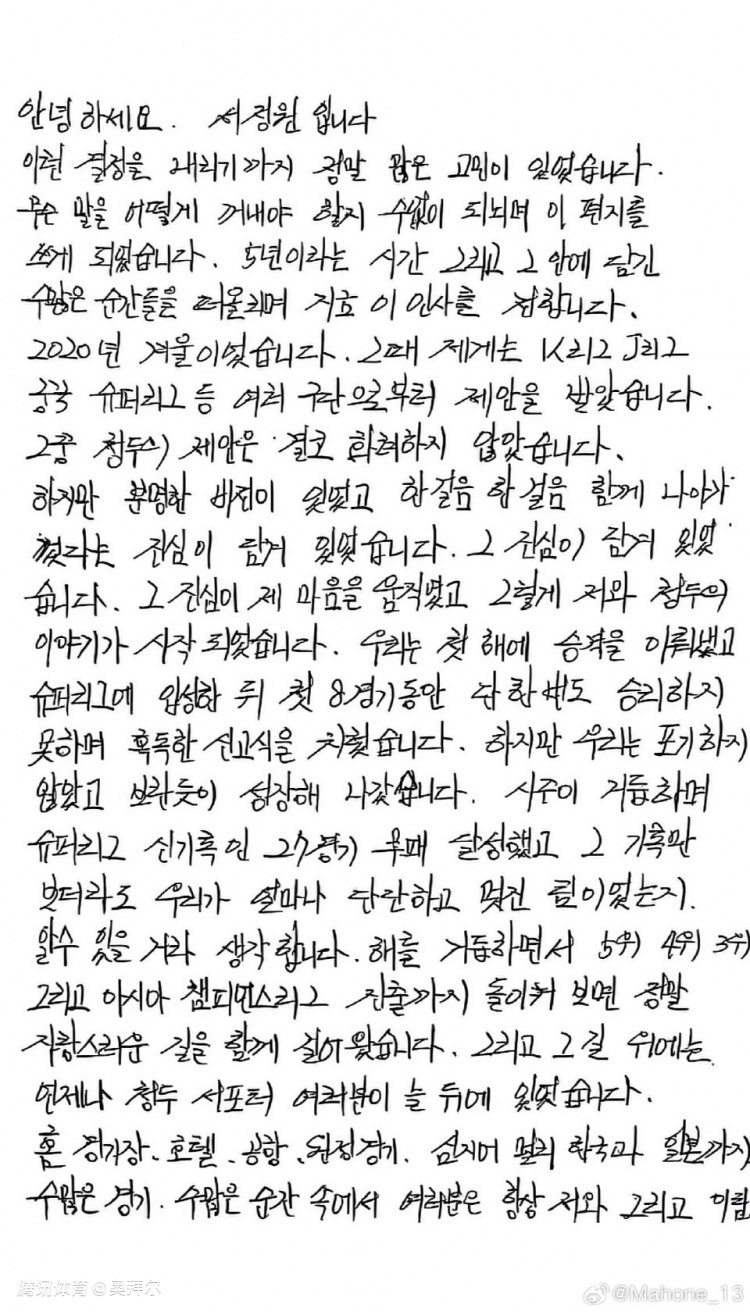 안녕하세요. 서정원 입니다
이런 결정을 내리기까지 정말 많은 고민이 있었습니다.
무슨 말을 어떻게 꺼내야 할지 수없이 되뇌며 이 편지를
쓰게 되었습니다. 5년이라는 시간 그리고 그 안에 담긴
수많은 순간들을 떠올리며 지효 이 인사를 전합니다.
2020년 겨울이었습니다. 그때 제게는 K리그 J리그
중국 슈퍼리그 등 여러 구단으로부터 제안을 받았습니다.
그중 청두의 제안은 결코 화려하지 않았습니다.
하지만 분명한 비전이 있었고 한걸음 한걸음 함께 나아가
겠다는 진심이 담겨 있었습니다. 그 진심이 담겨 있었
습니다. 그 진심이 제 마음을 움직였고 그렇게 저와 청두의
이야기가 시작 되었습니다. 우리는 첫 해에 승격을 이뤄냈고
슈퍼리그에 입성한 뒤 첫 8경기동안 단 한번도 승리하지
못하며 혹독한 신고식을 치렀습니다. 하지만 우리는 포기하지
않았고 보란듯이 성장해 나갔습니다. 시즌이 거듭하며
슈퍼리그 신기록인 27경기 무패 달성했고 그 기록만
보더라도 우리가 얼마나 단단하고 멋진 팀이었는지.
알수 있을 거라 생각합니다. 해를 거듭하면서 5위 4위 3위
그리고 아시아 챔피언스리그 진출까지 돌이켜 보면 정말
자랑스러운 길을 함께 걸어왔습니다. 그리고 그 길 위에는
언제나 청두 서포터 여러분이 늘 뒤에 있었습니다.
홈 경기장. 호텔. 공항. 원정경기. 심지어 멀리 한국과 일본까지
수많은 경기. 수많은 순간 속에서 여러분은 항상 저와 그리고 이팀
腾讯体育 @奥拜尔
@Mahone_13